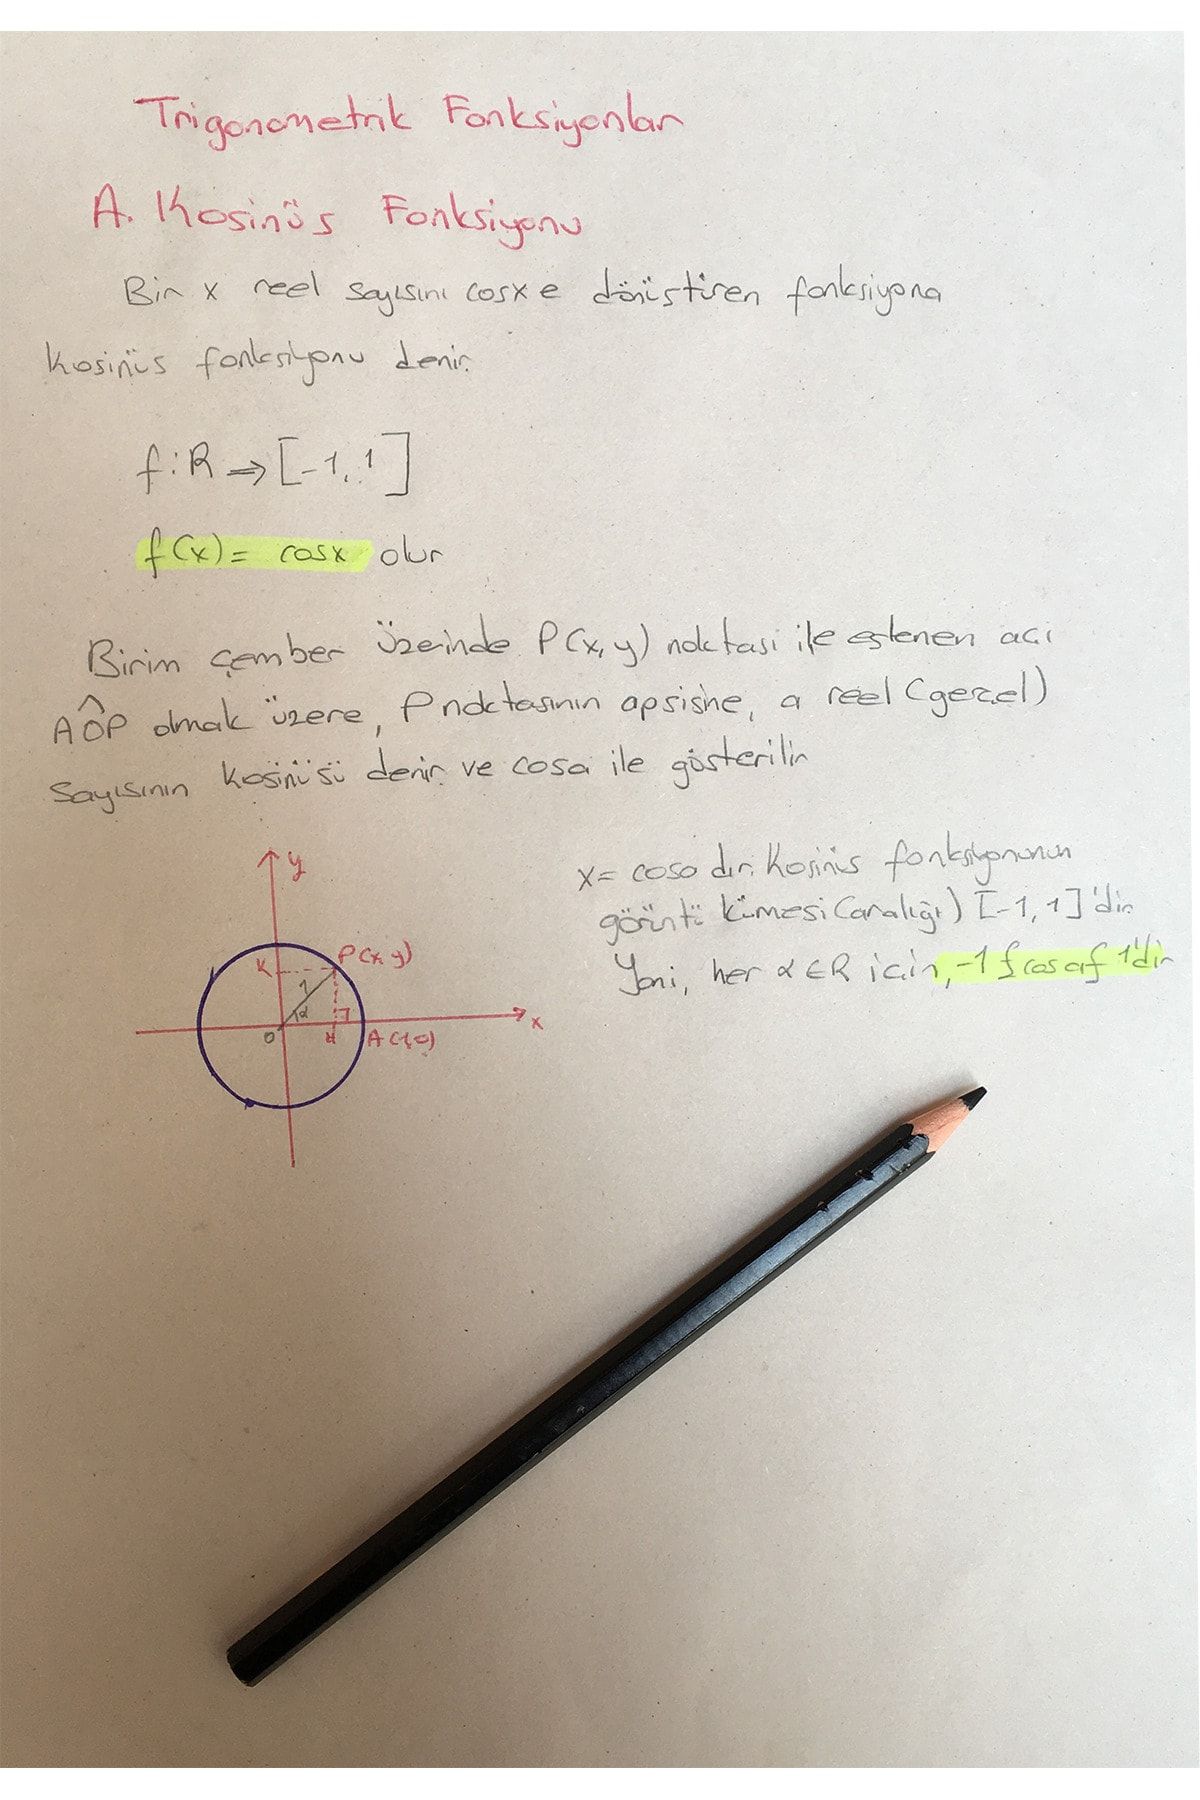 Trigonometrik Fonksiyonlar
A. Kosinüs Fonksiyonu
Bir x reel sayısını cosx e dönüştüren fonksiyona
kosinüs fonksiyonu denir.
f:R⇒[-1,1]
f(x)= cosx olur
Birim çember üzerinde P(x,y) noktası ile eşlenen açı
AÔP olmak üzere, P noktasının apsisine, a reel (gerçel)
sayısının kosinüsü denir ve cosa ile gösterilir
x= cosa dır. Kosinüs fonksiyonunun
görüntü kümesi (aralığı) [-1,1]'dir.
Yani, her α∈R için, -1 f cos a f 1'dir
y
K
P(x,y)
1
α
O
H
A(1,0)
x